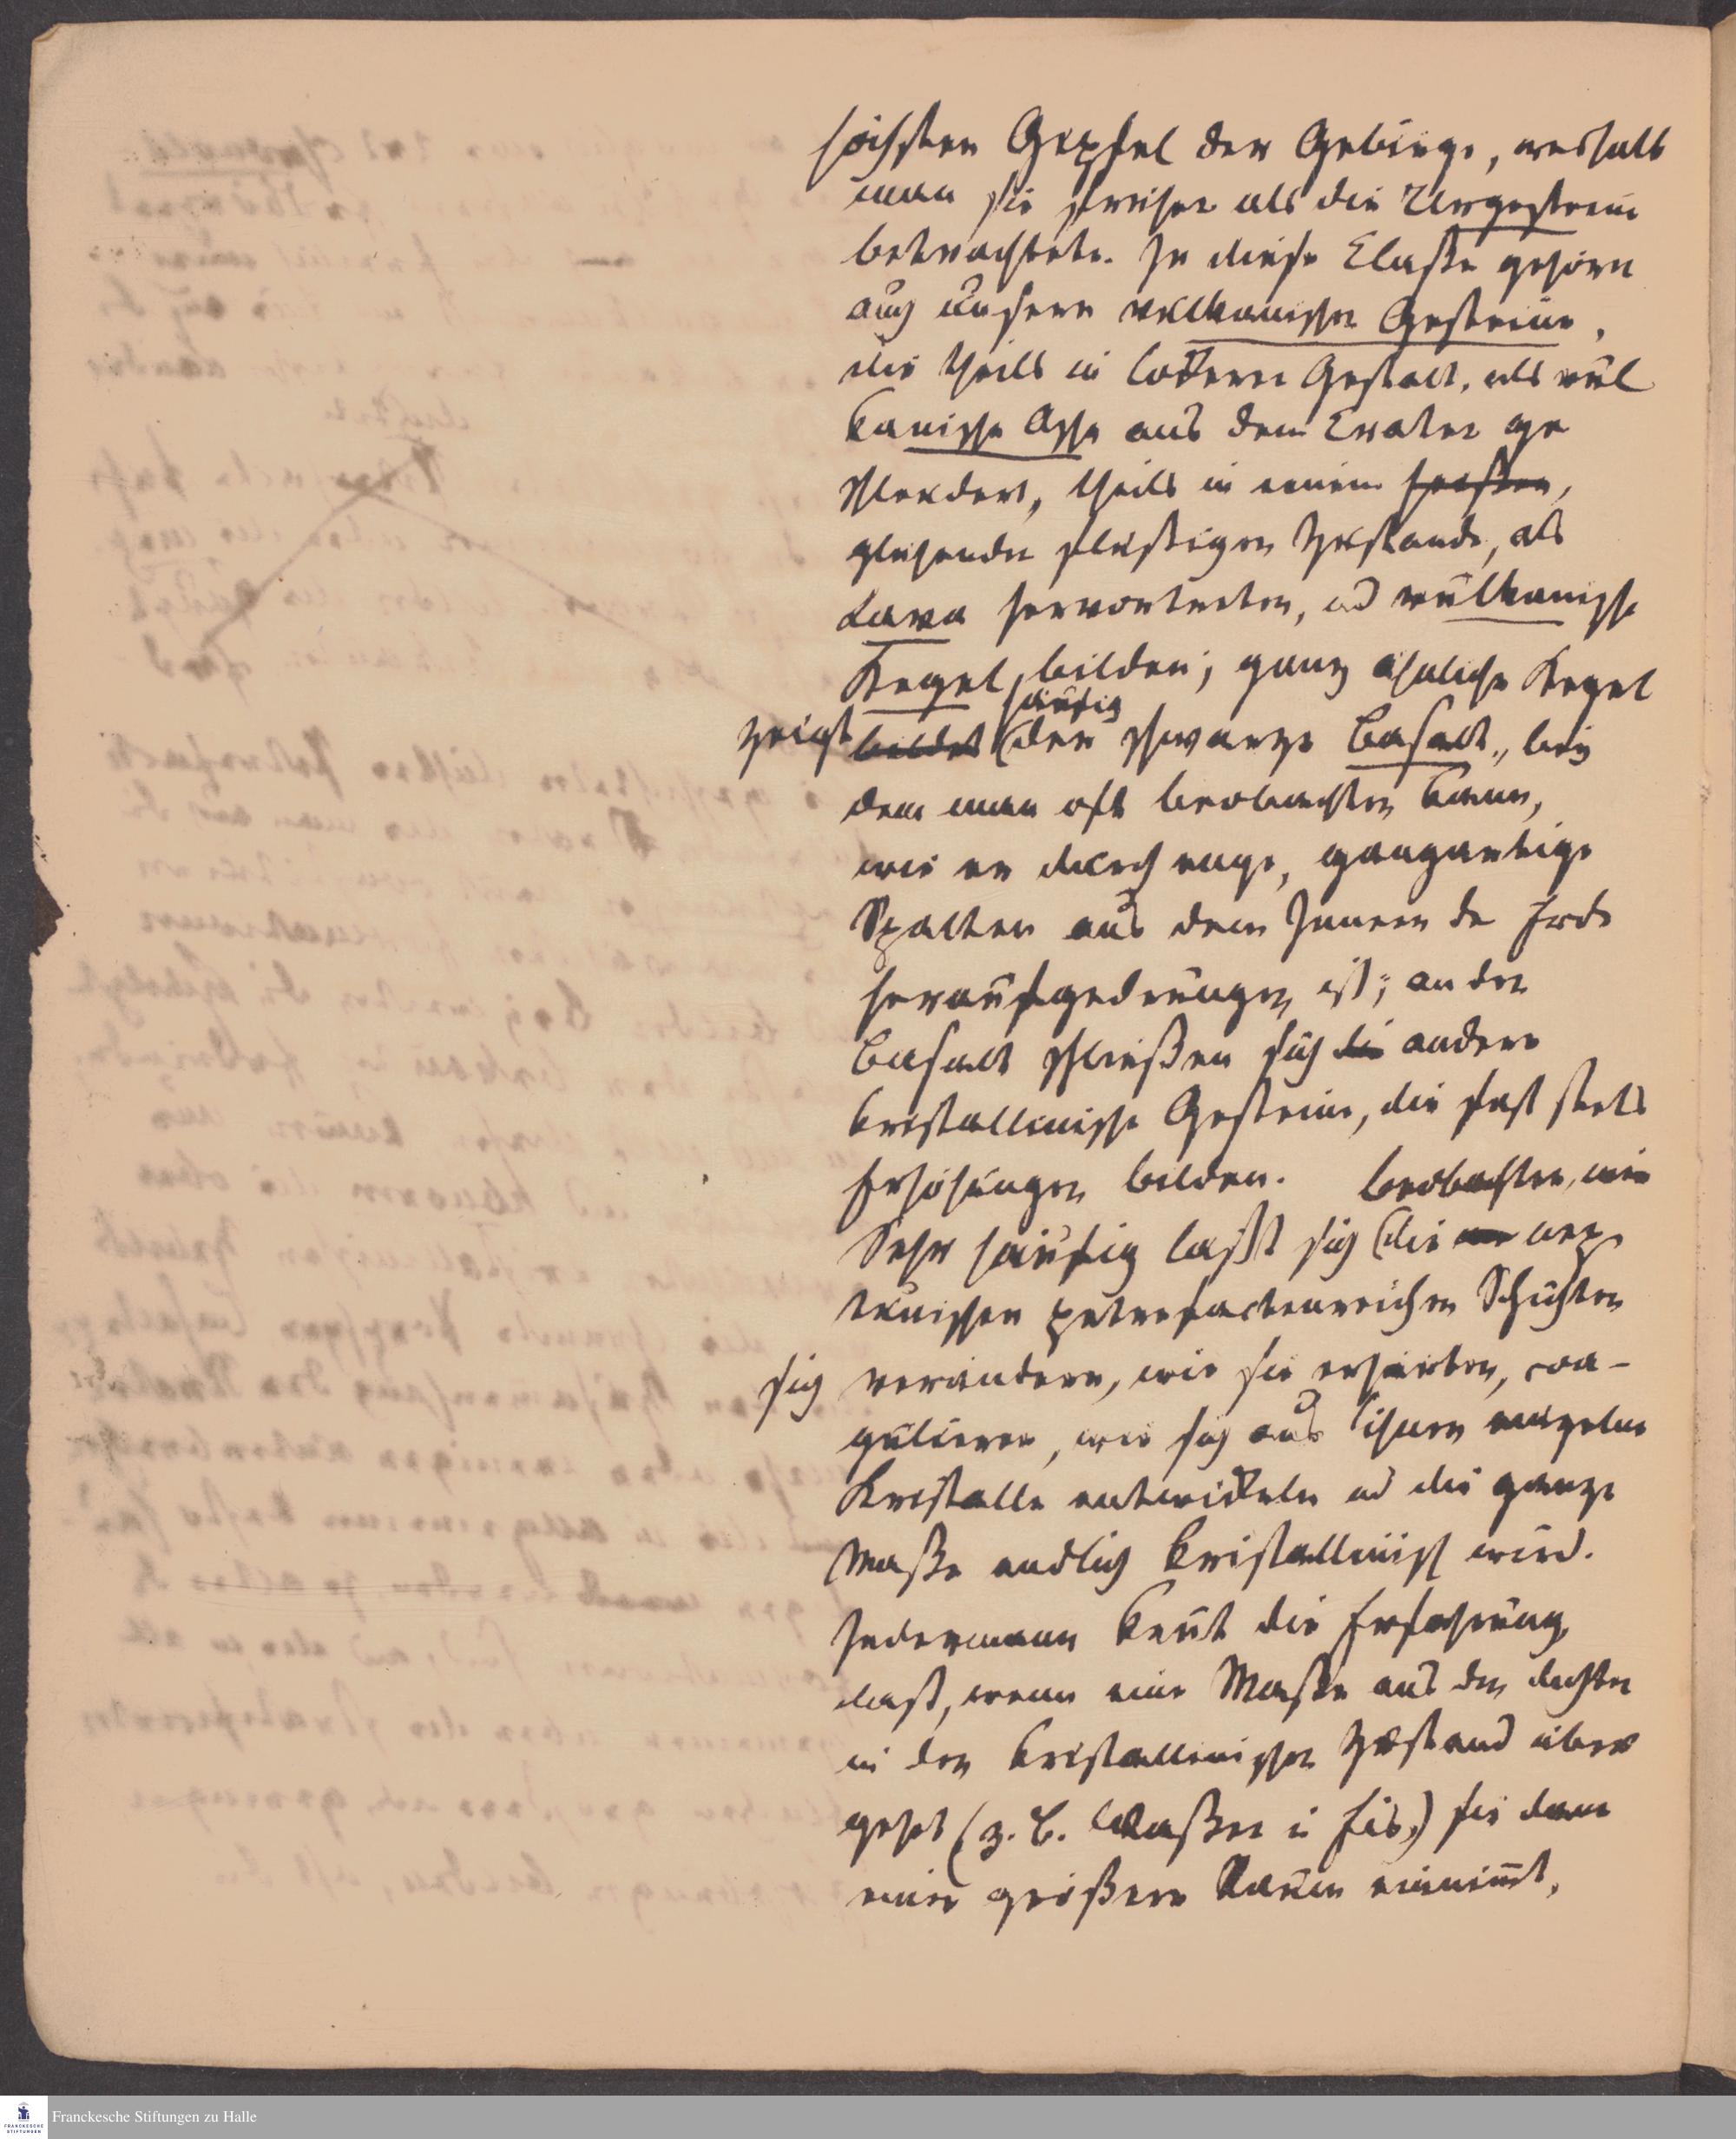 höchsten Gipfel der Gebirge, weshalb
man sie früher als die Urgesteine
betrachtete. In diese Classe gehören
auch unsere vulkanischen Gesteine,
die theils in lockerer Gestalt, als vul
kanische Asche aus dem Crater ge
schleudert, theils in einem heißen,
glühenden flüßigen Zustande, als
Lava hervortreten, und vulkanische
Kegel bilden; ganz ähnliche Kegel
häufig
zeigt bildet der schwarze Basalt, bei
dem man oft beobachten kann,
wie er durch enge, gangartige
Spalten aus dem Innern der Erde
heraufgedrungen ist; an den
Basalt schließen sich die andern
kristallinische Gesteine, die fast stets
Erhöhungen bilden. beobachten, wie
Sehr häufig laßt sich die nep
tunischen petrefactenreichen Schichten
sich verändern, wie sie erhärten, coa-
gulieren, wie sich aus ihnen einzelne
Kristalle entwickeln und die ganze
Maße endlich kristallinisch wird.
Jedermann kennt die Erfahrung,
daß, wenn eine Maße aus den dichten
in den kristallinischen Zustand über
geht (z. B. Waßer in Eis,) sie dann
einen größern Raum einnimmt,
Franckesche Stiftungen zu Halle
FRANCKESCHE
STIFTUNGEN